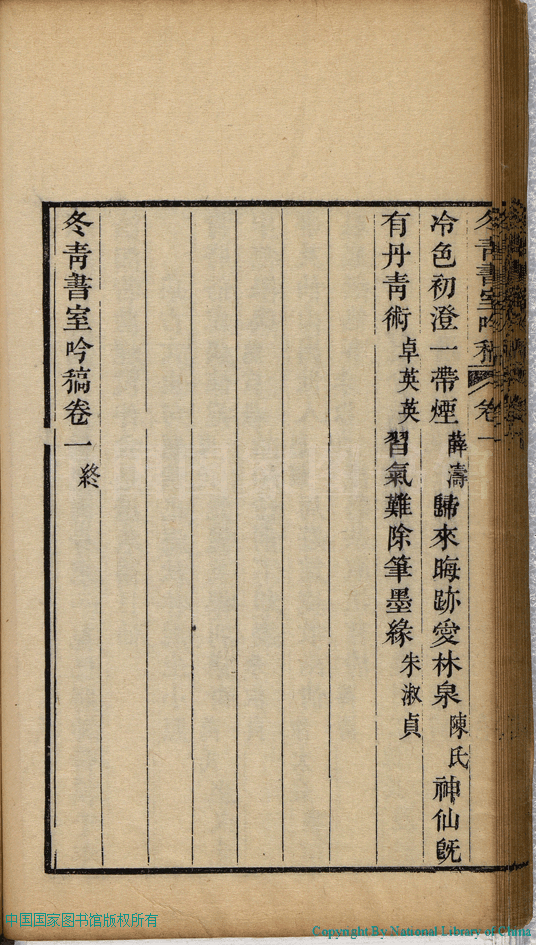 冬青書室吟稿 卷一
冷色初澄一帶煙 薛濤 歸來晦跡愛林泉 陳氏 神仙既
有丹青術 卓英英 習氣難除筆墨緣 朱淑貞
冬青書室吟稿卷一 終
中国国家图书馆
中国国家图书馆版权所有
Copyright By National Library of China